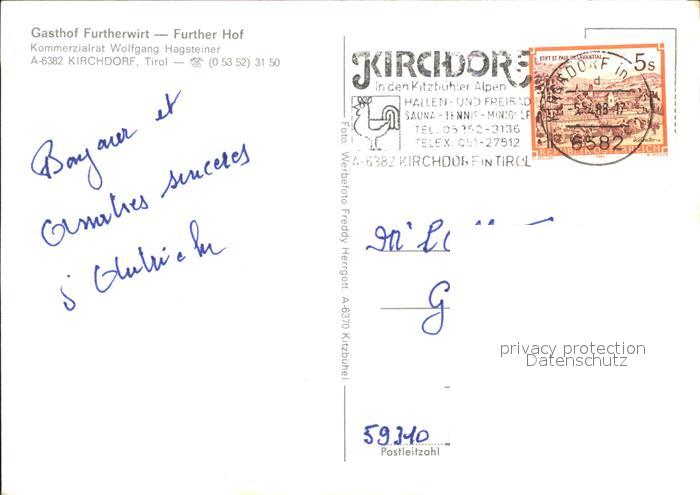 Gasthof Furtherwirt — Further Hof
Kommerzialrat Wolfgang Hagsteiner
A-6382 KIRCHDORF, Tirol — ☏ (0 53 52) 31 50
KIRCHDORF
in den Kitzbühler Alpen
HALLEN - UND FREIBAD
SAUNA - TENNIS - MINIGOLF
TEL. 05352-3136
TELEX. 051-27512
A-6382 KIRCHDORF IN TIROL
STIFT ST. PAUL IM LAVANTTAL
5s
KIRCHDORF in
d
88-17
6382
REPUBLIK ÖSTERREICH
Bonjour et
Amitiés sincères
d'Autriche
Foto: Werbefoto Freddy Herrgott, A-6370 Kitzbühel
G
privacy protection
Datenschutz
59310
Postleitzahl